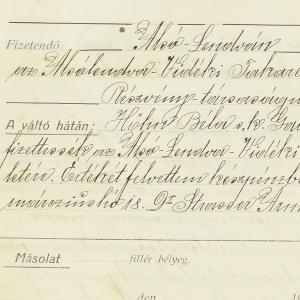 Fizetendő Alsó-Lendván
az Alsólendva-Vidéki Takaré
Részvény-társaságn
A váltó hátán: Hőhn Béla s.k.
fizettessék az Alsó-Lendva-Vidéki
letére. Értékét felvettem készpénzb
márcziushó 18. Dr Strasser Árm
Másolat fillér bélyeg.
den 19